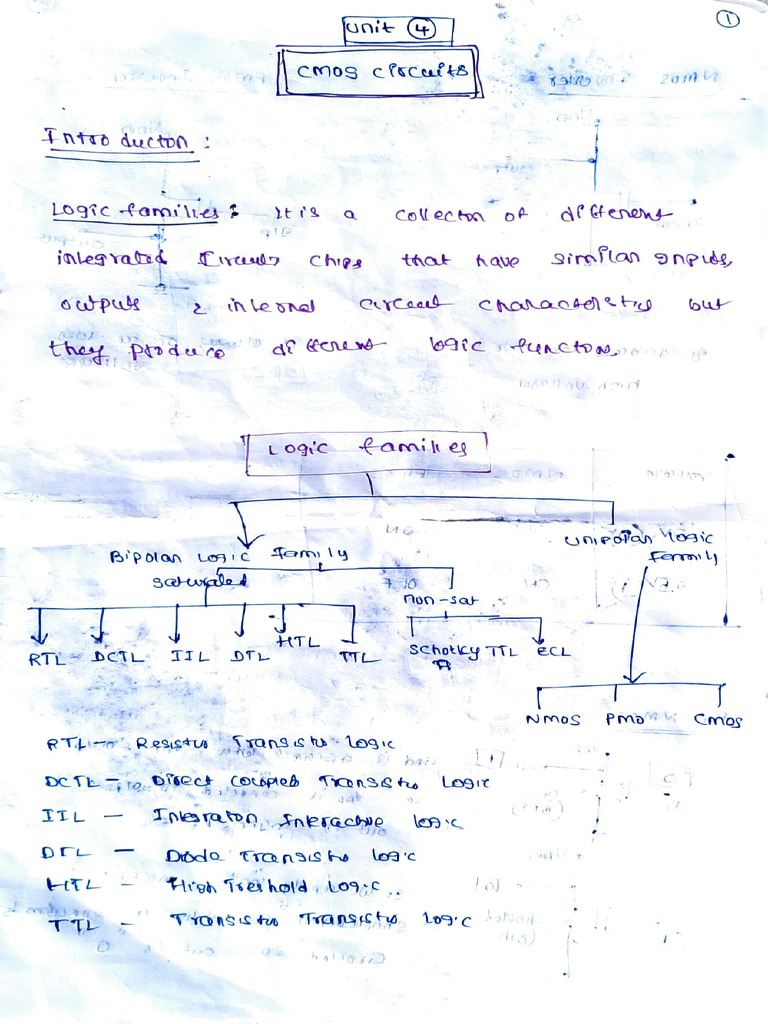 1
Unit 4
CMOS circuits
Introducton :
Logic families : It is a collecton of different
integrated Circuits chips that have similar inputs,
outputs & internal circuit characteristics but
they produce different logic functions.
Logic families
Bipolar Logic family
Unipolar logic
family
saturated
non-sat
RTL DCTL IIL DTL HTL TTL
Schotky TTL ECL
NMOS PMO CMOS
RTL - Resistor Transistor Logic
DCTL - Direct coupled Transistor Logic
IIL - Integraton Interactive logic
DTL - Diode Transistor logic
HTL - High Treshold Logic
TTL - Transistor Transistor Logic